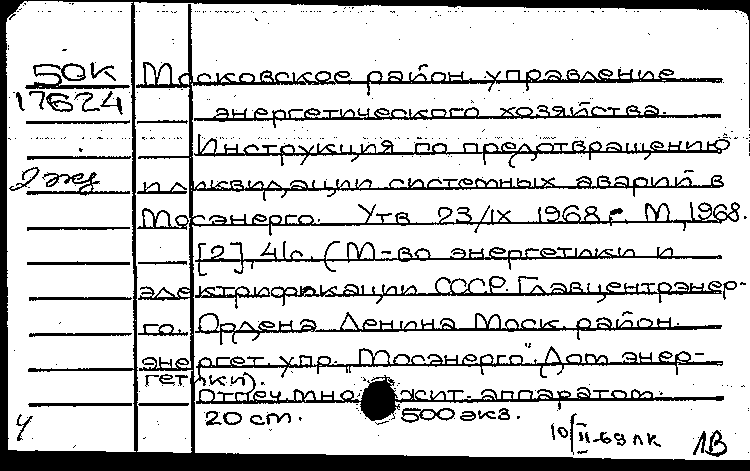 50К Московское район. управление
17624 энергетического хозяйства.
Инструкция по предотвращению
2 экз и ликвидации системных аварий в
Мосэнерго. Утв 23/IX 1968 г. М., 1968.
[2], 41с. (М-во энергетики и
электрификации СССР. Главцентрэнер-
го. Ордена Ленина Моск. район.
энергет. упр. "Мосэнерго". Дом энер-
гетики).
Отпеч. множит. аппаратом.
20 ст. 500 экз.
Ч 10/II-69 ЛК 1В